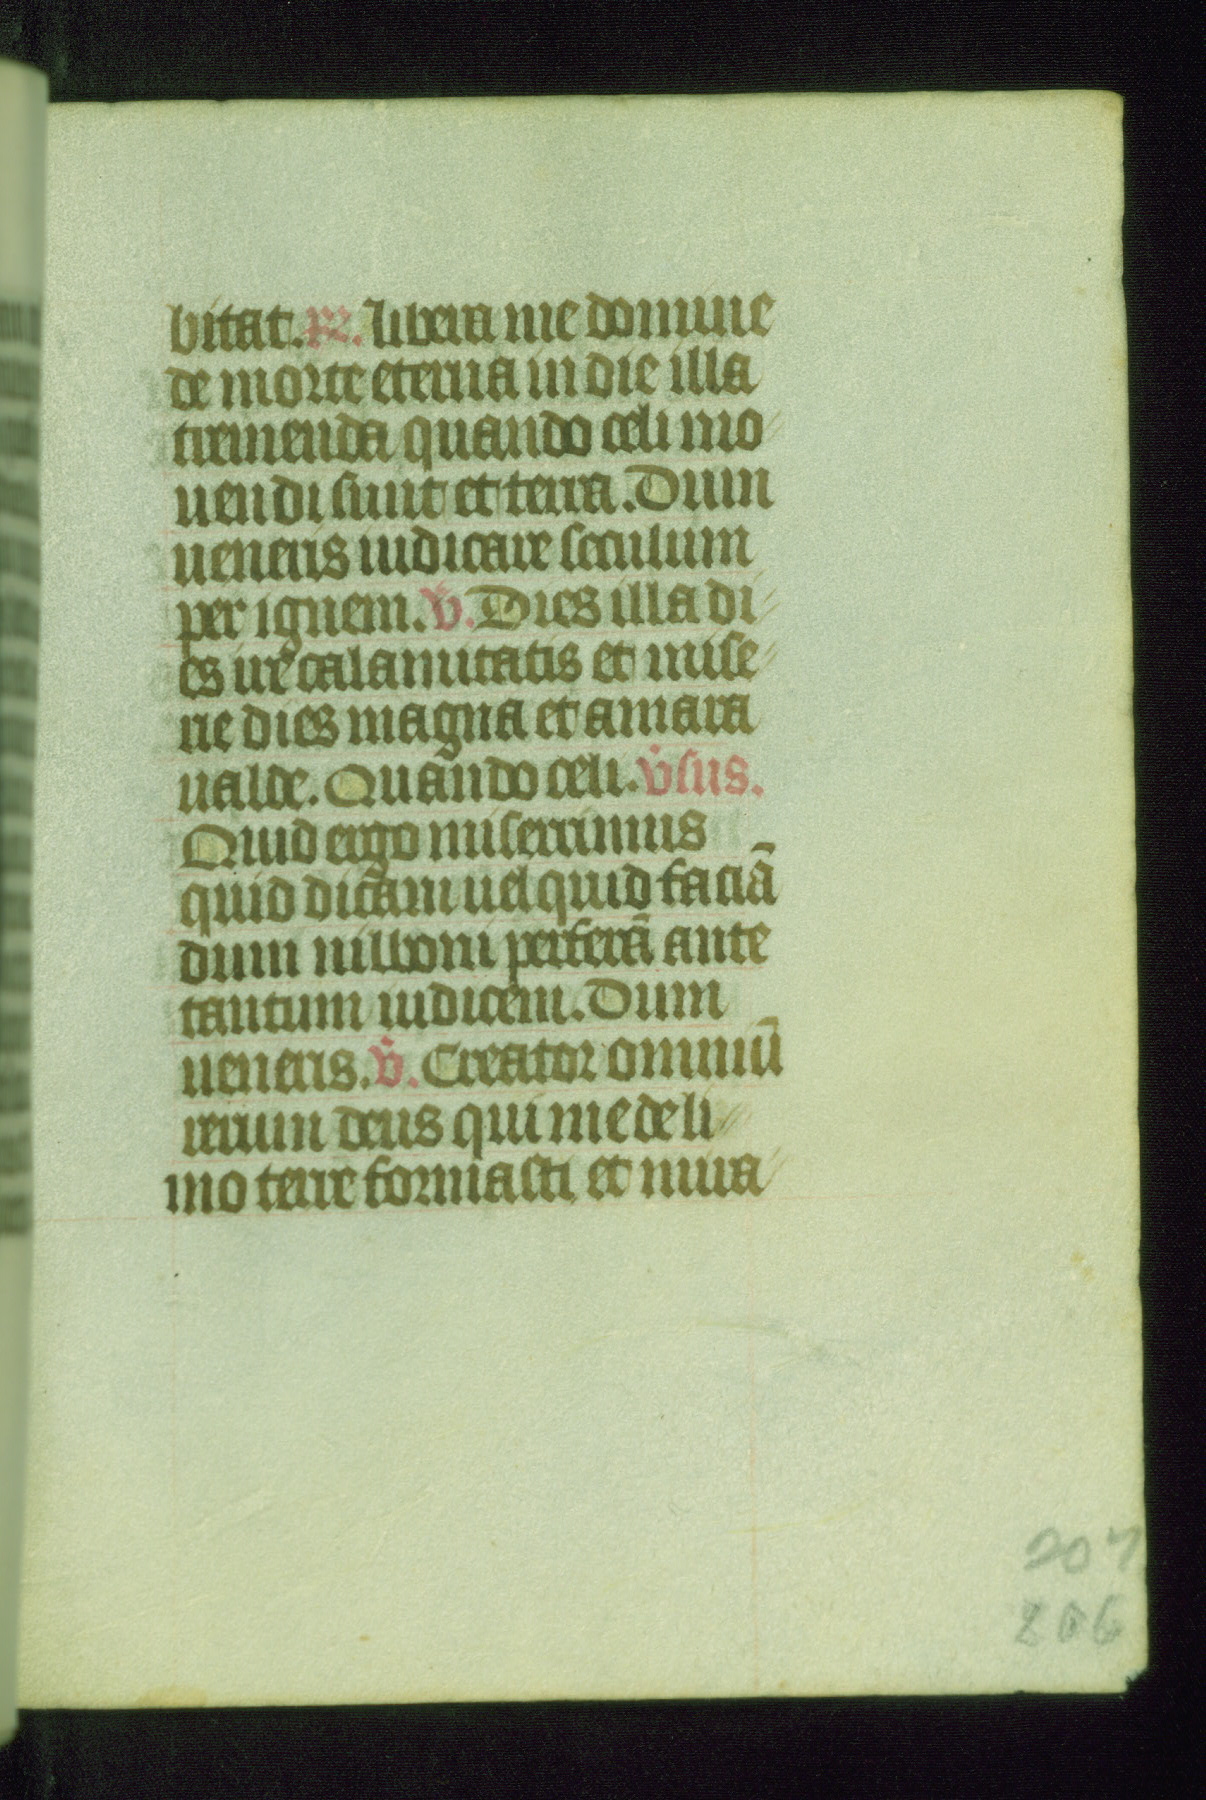 bitat. ℟. Libera me domine
de morte eterna in die illa
tremenda quando celi mo
uendi sunt et terra. Dum
ueneris iudicare seculum
per ignem. v̊. Dies illa di
es ire calamitatis et mise
rie dies magna et amara
ualde. Quando celi. v̊sus.
Quid ergo miserrimus
quid dicam uel quid faciā
dum nil boni perferā ante
tantum iudicem. Dum
ueneris. v̊. Creator omniū
rerum deus qui me de li
mo terre formasti et mira
207
206